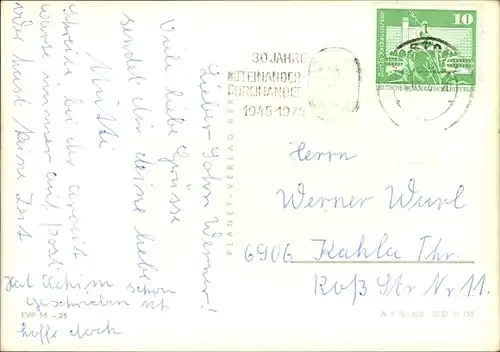 Lieber Sohn Werner!
Viele liebe Grüsse
sendet dir deine liebe
Mutti
Streike bei dir arbeit
warte immer auf post
oder hast keine Zeit
Hat Achim schon
geschrieben ich
hoffe doch
EVP M -,25
PLANET-VERLAG BERLIN
30 JAHRE
MITEINANDER
FÜREINANDER
1945-1975
10
DEUTSCHE DEMOKRATISCHE REPUBLIK
Herrn
Werner Wurl
6906 Kahla Thr.
Roß Str Nr 11.